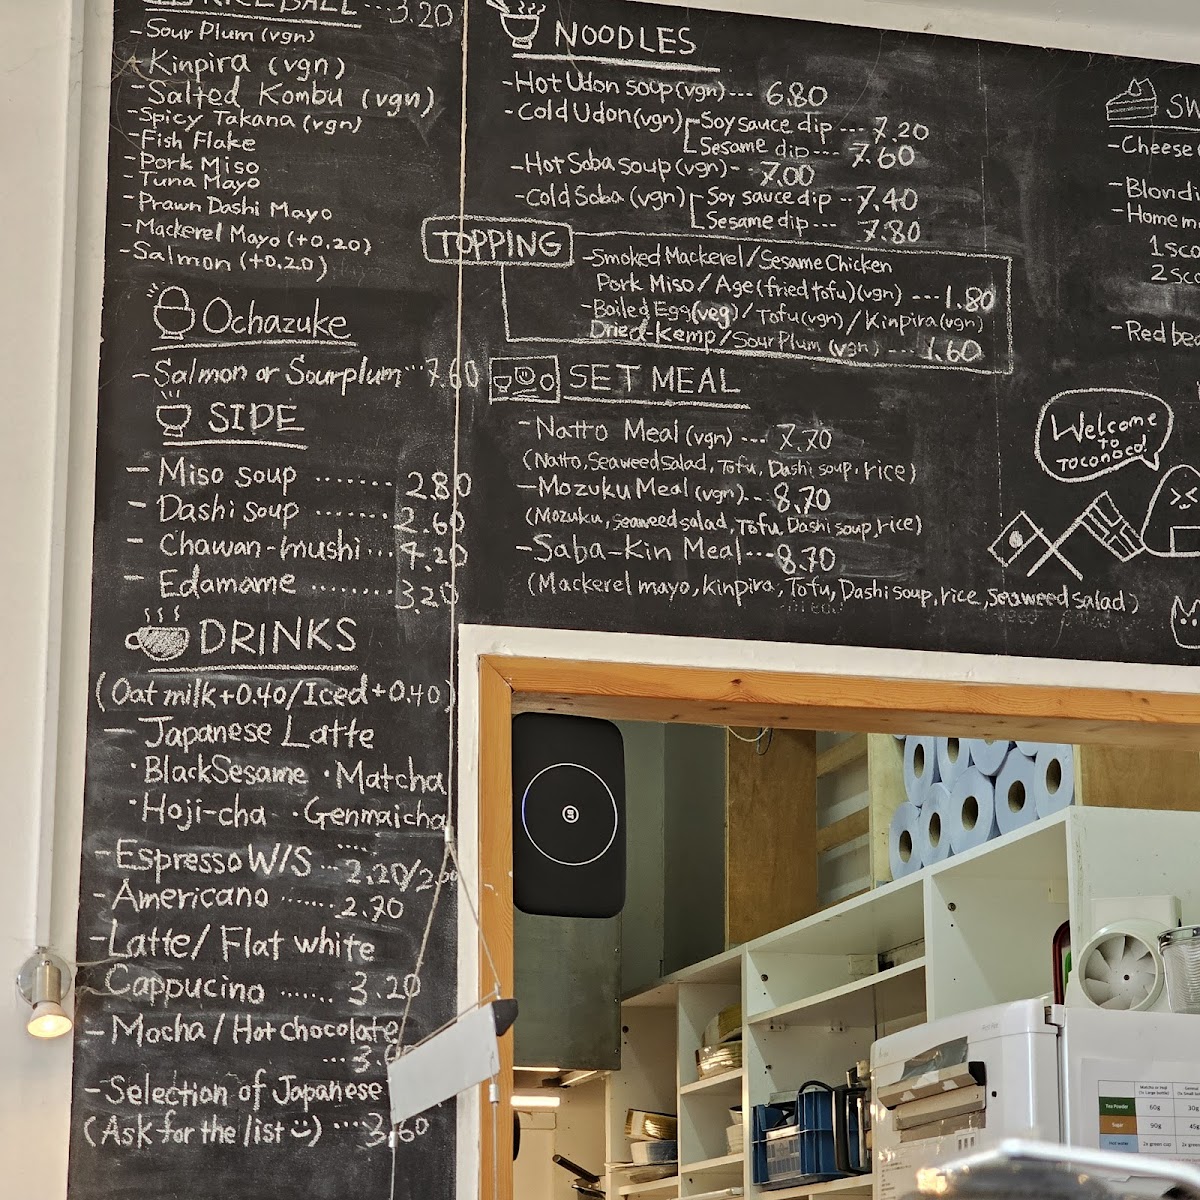 RICE BALL ...3.20
-Sour Plum (vgn)
-Kinpira (vgn)
-Salted Kombu (vgn)
-Spicy Takana (vgn)
-Fish Flake
-Pork Miso
-Tuna Mayo
-Prawn Dashi Mayo
-Mackerel Mayo (+0.20)
-Salmon (+0.20)
Ochazuke
-Salmon or Sourplum...7.60
SIDE
- Miso soup ....... 2.80
- Dashi soup ....... 2.60
- Chawan-mushi... 4.20
- Edamame ........ 3.20
DRINKS
(Oat milk+0.40/Iced+0.40)
- Japanese Latte
·BlackSesame ·Matcha
·Hoji-cha ·Genmaicha
....
-Espresso W/S ... 2.20/2.
-Americano ....... 2.70
-Latte/ Flat white
Cappucino ....... 3.20
-Mocha / Hot chocolate
... 3.
-Selection of Japanese
(Ask for the list) .... 3.60
NOODLES
-Hot Udon soup(vgn)--- 6.80
-Cold Udon(vgn) Soy sauce dip --- 7.20
Sesame dip--- 7.60
-Hot Soba soup(vgn)-- 7.00
-Cold Soba (vgn) Soy sauce dip -- 7.40
Sesame dip--- 7.80
TOPPING
-Smoked Mackerel/Sesame Chicken
Pork Miso / Age(fried tofu)(vgn) ---1.80
-Boiled Egg(veg)/Tofu(vgn)/Kinpira(vgn)
Dried-Kemp/Sour Plum (vgn) --- 1.60
SET MEAL
-Natto Meal (vgn) --- 7.70
(Natto, Seaweed Salad, Tofu, Dashi soup, rice)
-Mozuku Meal (vgn)--- 8.70
(Mozuku, seaweed salad, Tofu, Dashi soup, rice)
-Saba-Kin Meal---8.70
(Mackerel mayo, kinpira, Tofu, Dashi soup, rice, seaweed salad)
SW
-Cheese
-Blondi
-Homem
1sco
2sc
-Red bea
Welcome
to
TOCONOCO!
Matcha or Hoji
Tea Powder 60g 30g
Sugar 90g 45g
Hot water 2x green cup